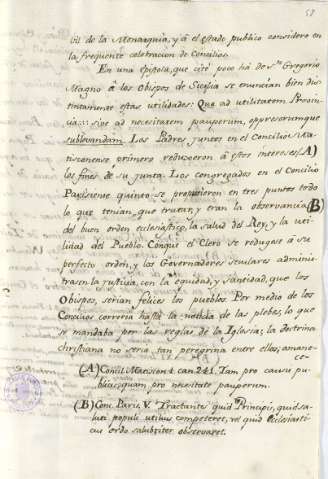 58
vil de la Monarquia, y á el estado publico considero en
la frequente celebracion de Concilios.
En una Epistola, que cité poco há de S.n Gregorio
Magno á los Obispos de Sicilia se enuncian bien dis-
tintamente estas utilidades: Que ad utilitatem Provin-
ciæ: sive ad necesitatem pauperum, oppresorumque
sublevandam. Los Padres juntos en el Concilio Ma-
tisconense primero reduxeron á estos intereses (A)
los fines de su junta. Los congregados en el Concilio
Parisiense quinto se propusieron en tres puntos todo
lo que tenian que tratar, y eran la observancia (B)
del buen orden eclesiastico, la salud del Rey, y la uti-
lidad del Pueblo. Conque el Clero se redugese á su
perfecto orden, y los Governadores seculares adminis-
trasen la justicia, con la equidad, y santidad, que los
Obispos, serian felices los pueblos. Por medio de los
Concilios correria hasta la noticia de las plebes, lo que
se mandaba por las reglas de la Iglesia; la doctrina
christiana no seria tan peregrina entre ellas, amane-
ce-
(A) Concil. Matiscon. 1. can. 241. Tam pro causis pu-
blicis, quam pro necesitate pauperum.
(B) Conc. Paris. V. Tractantes quid Principis, quid sa-
luti populi utilius competeret, vel quid Eclesiasti-
cus ordo salubriter observaret.